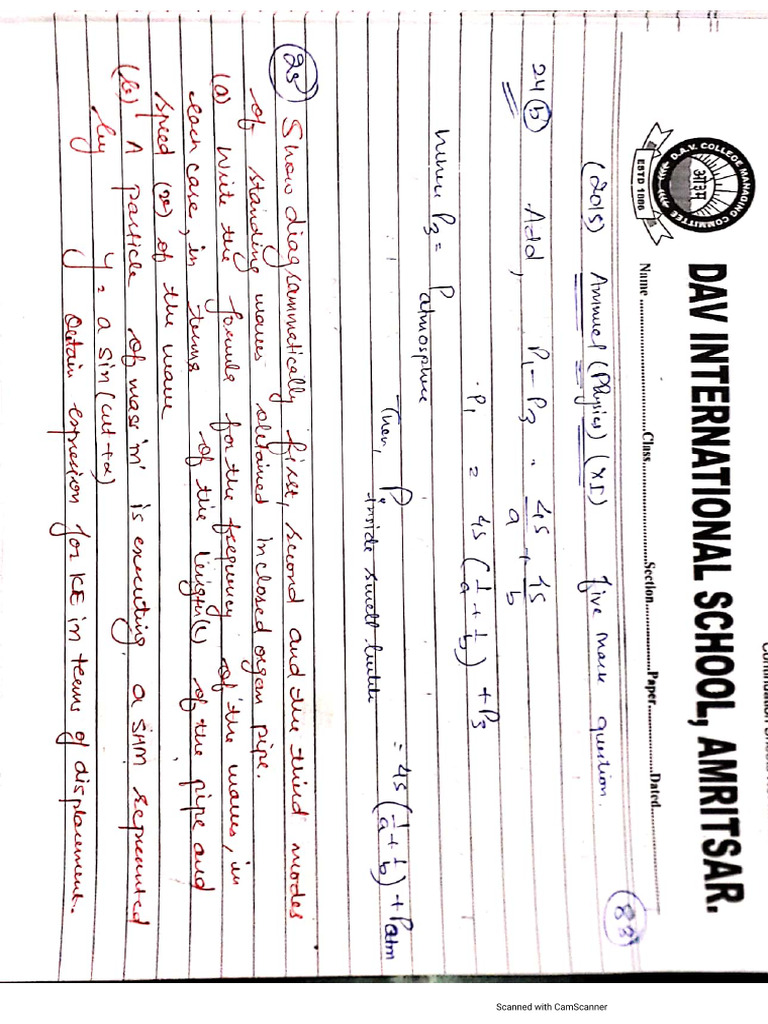 Continuation Sheet No.
DAV INTERNATIONAL SCHOOL, AMRITSAR.
D.A.V. COLLEGE MANAGING COMMITTEE
ओ३म्
ESTD 1886
Name ..................Class..................Section.............Paper..............Dated..............
88
(2015) Annual (Physics) (XI) five mark question.
24 (b) Add, P1 - P3 = 4S/a + 4S/b
P1 = 4S (1/a + 1/b) + P3
where P3 = P atmosphere
Then, P inside small bubble = 4S (1/a + 1/b) + Patm
(25) Show diagrammatically first, second and the third modes
of standing waves obtained in closed organ pipe.
(a) Write the formula for the frequency of the waves, in
each case, in terms of the length (L) of the pipe and
speed (v) of the wave
(b) A particle of mass 'm' is executing a SHM represented
by y = a sin(ωt+α)
Obtain expression for KE in terms of displacement.
Scanned with CamScanner